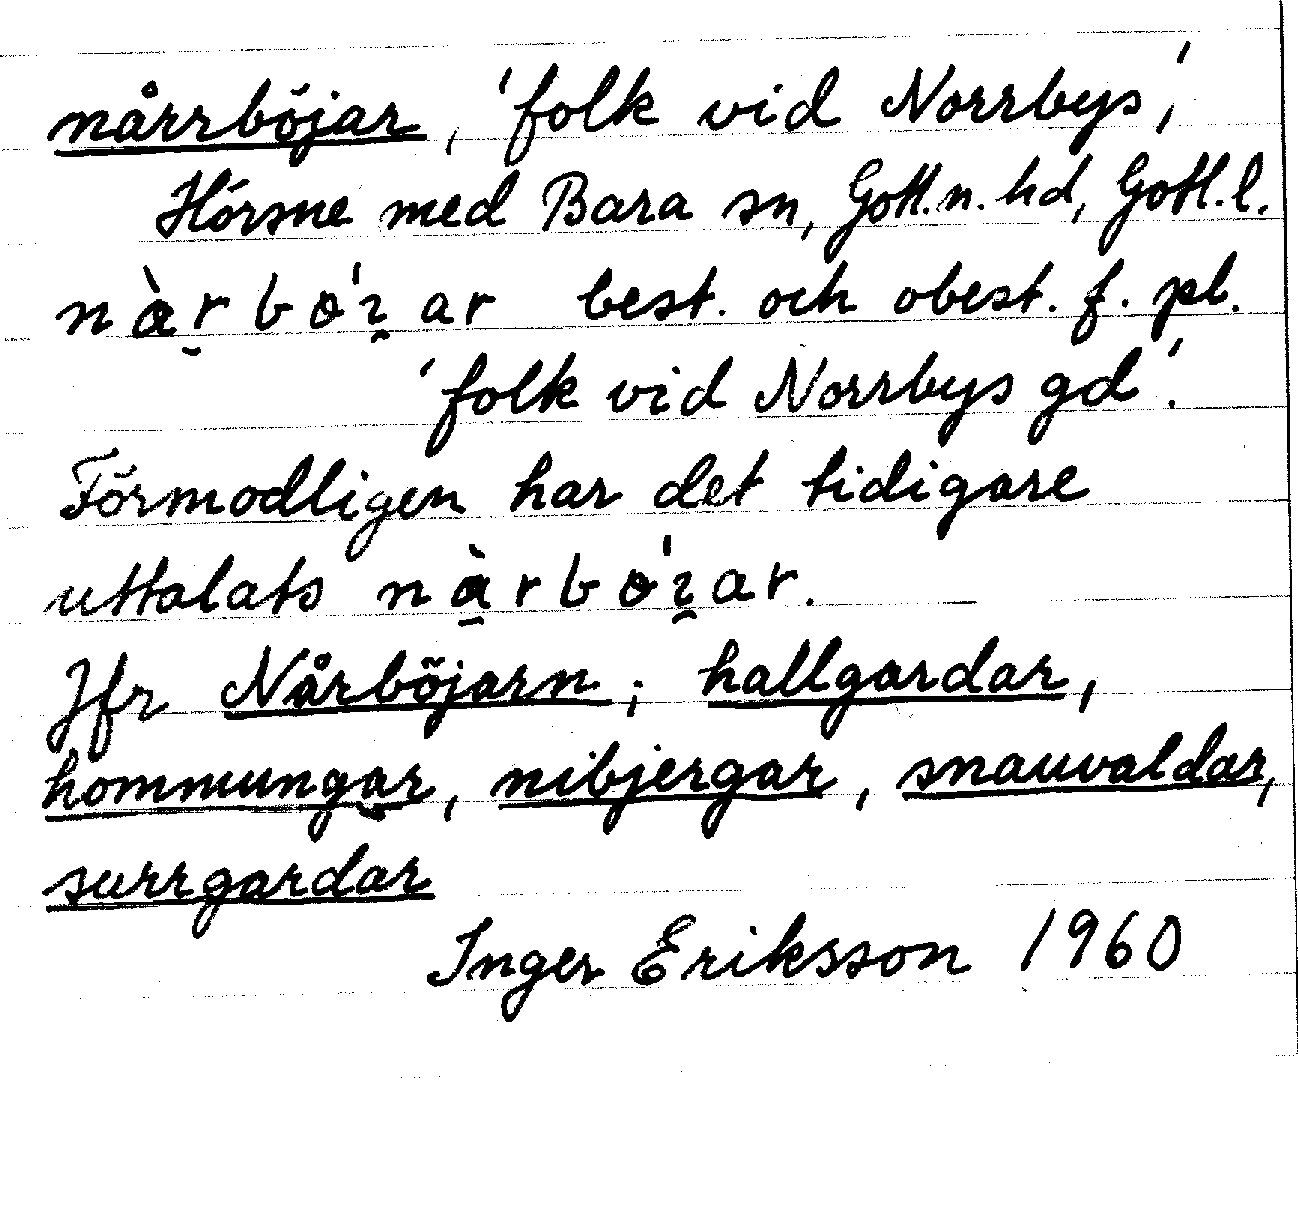 nårrböjar, 'folk vid Norrbys',
Hörsne med Bara sn, Gotl.n. hd, Gotl.l.
best. och obest. f. pl.
'folk vid Norrbys gd'.
Förmodligen har det tidigare
uttalats
Jfr Nårböjarn; hallgardar,
hommungar, nibjergar, snauvaldar,
surrgardar
Inger Eriksson 1960